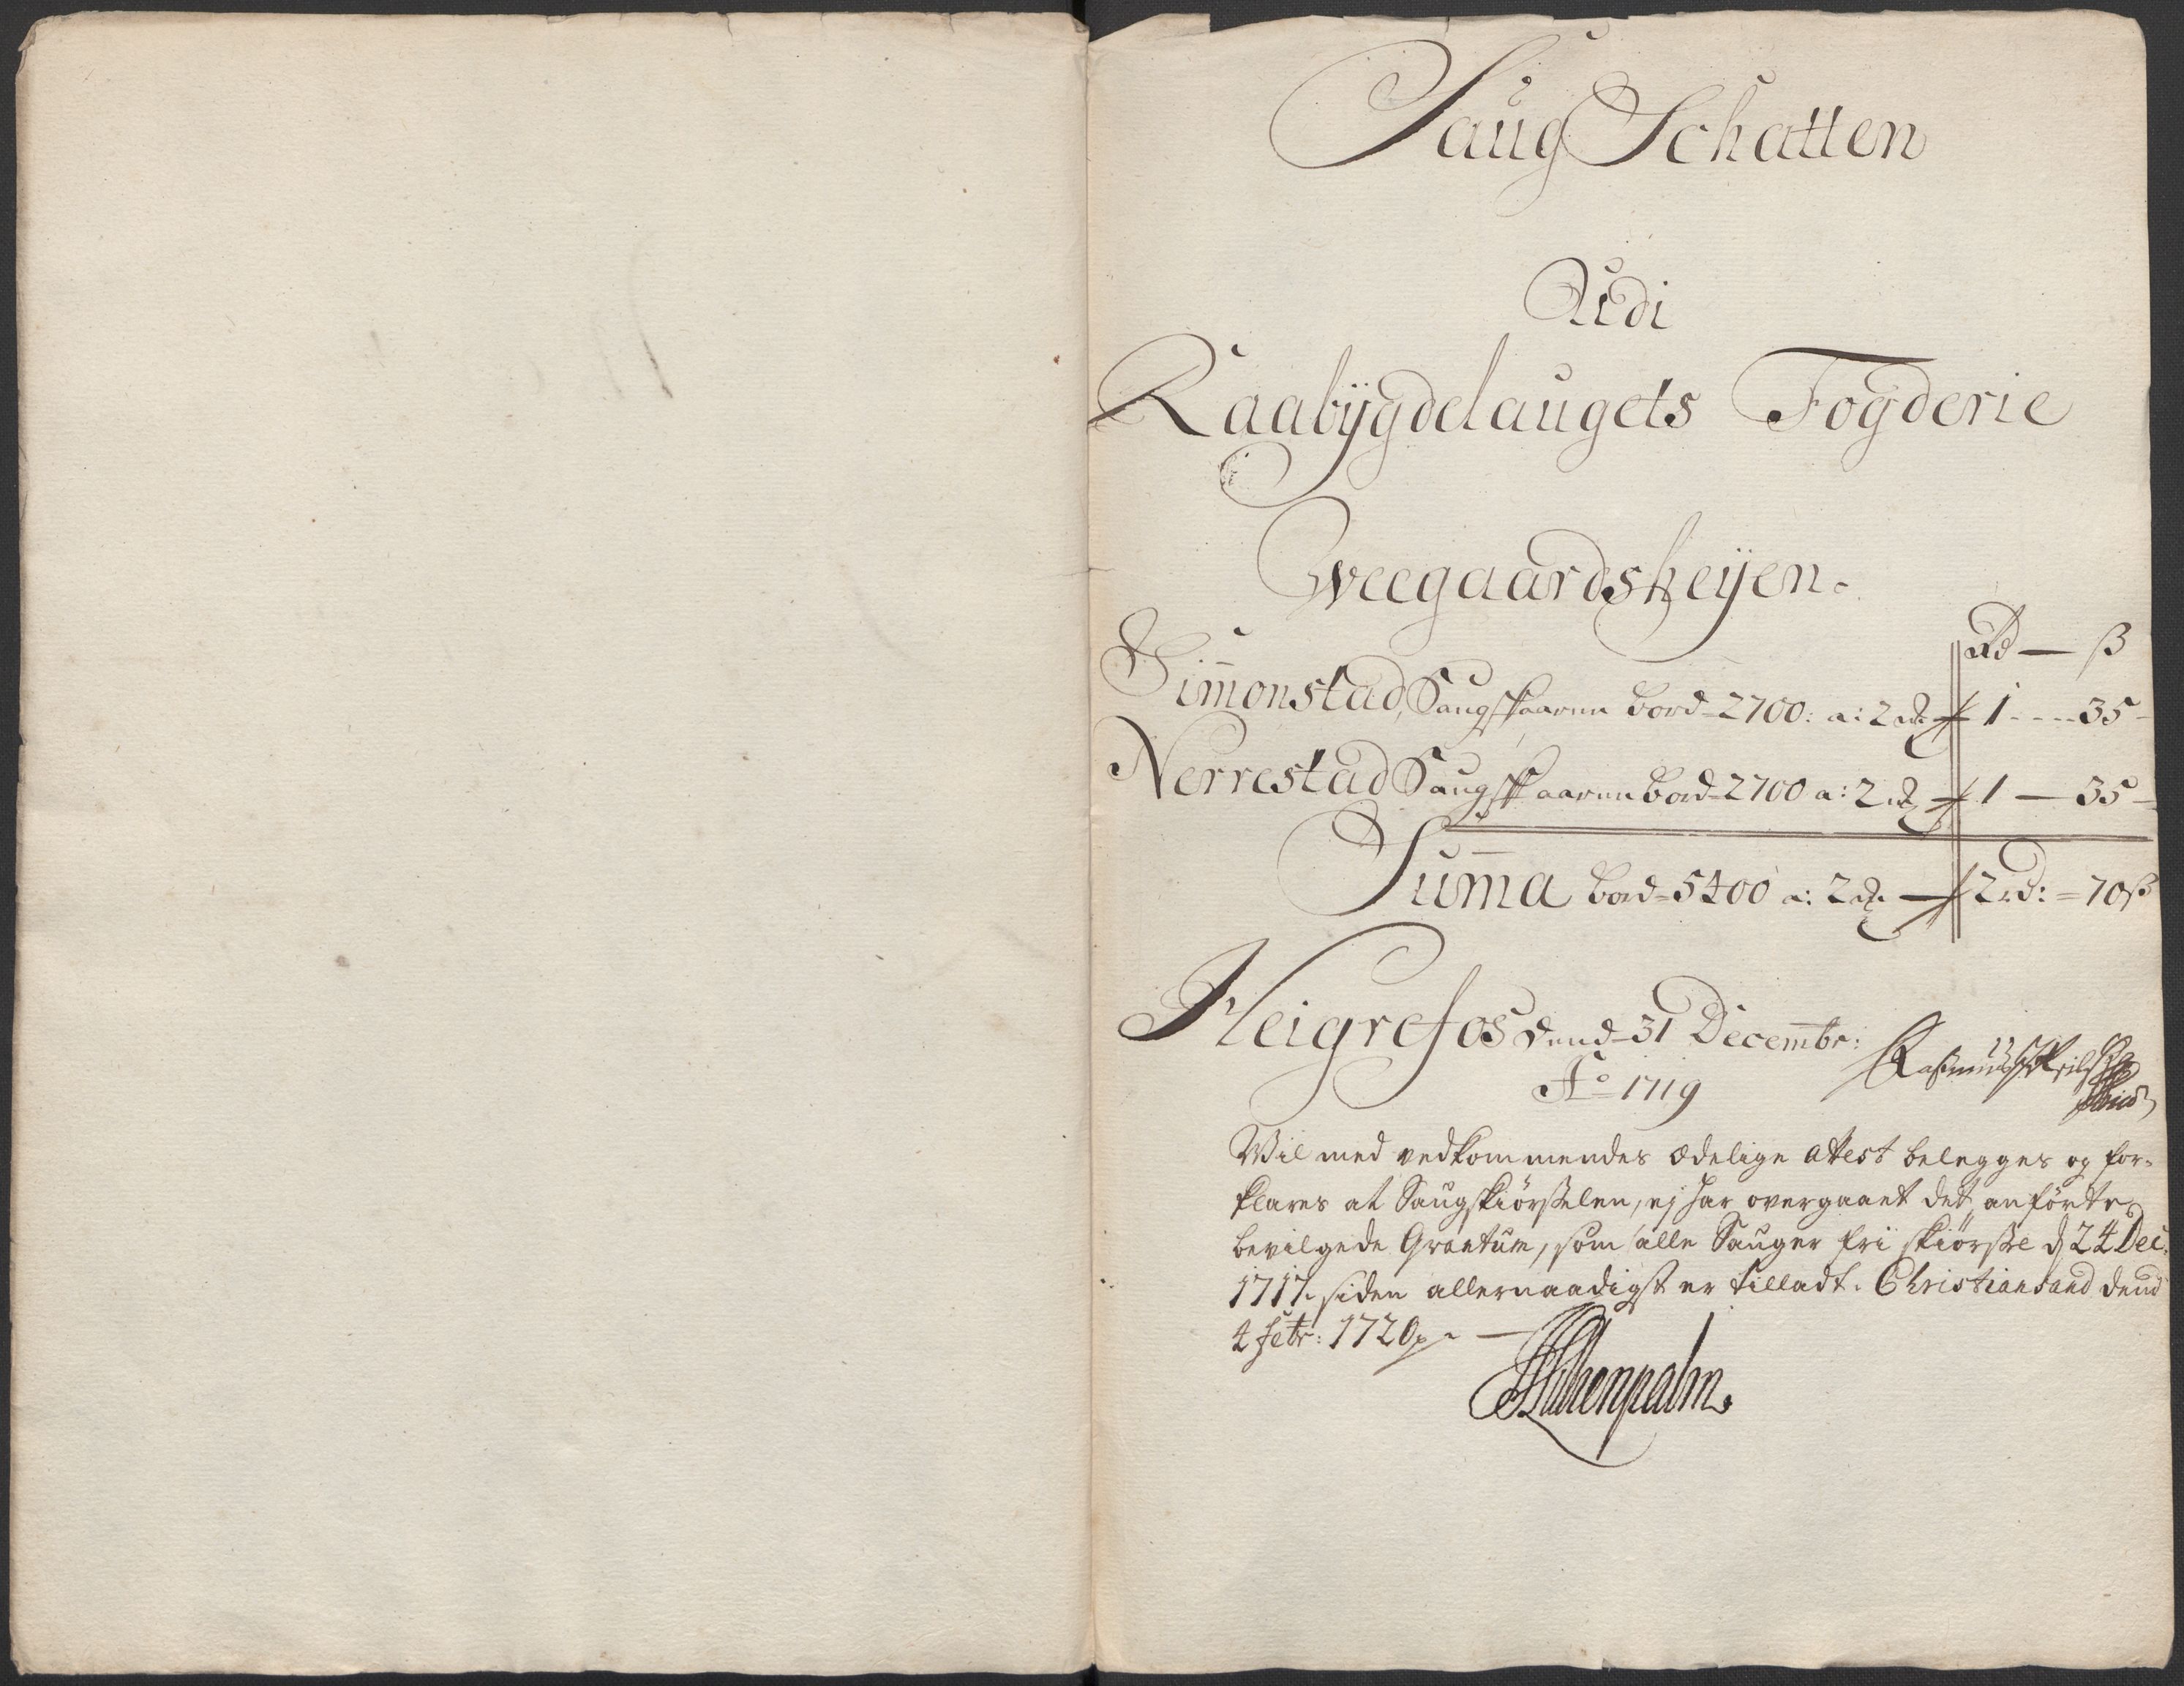 Saug Schatten
Udi
Raabÿgdelaugets Fogderie
Weegaardsheÿen.
Rd — ß
Sim̄onstad, Saug skaaren bord-2700: a: 2 rd. 1 - - - - 35 -
Nerrestad Saug skaaren bord-2700 a: 2 rd 1 — 35 —
Sum̄a bord-5400 a: 2 rd. — 2 rd: = 70 ß
Heigrefos dend-31 Decembr:
Ao 1719
Rasmus
Vil med vedkommendes Edelige Attest belegges og for-
klares at Saugskiørßelen, ej har overgaaet det anførte
bevilgede Qvantum, som alle Sauger fri skiørsle d 24 Dec:
1717. siden allernaadigst er tilladt. Christiansand dend
4 febr: 1720